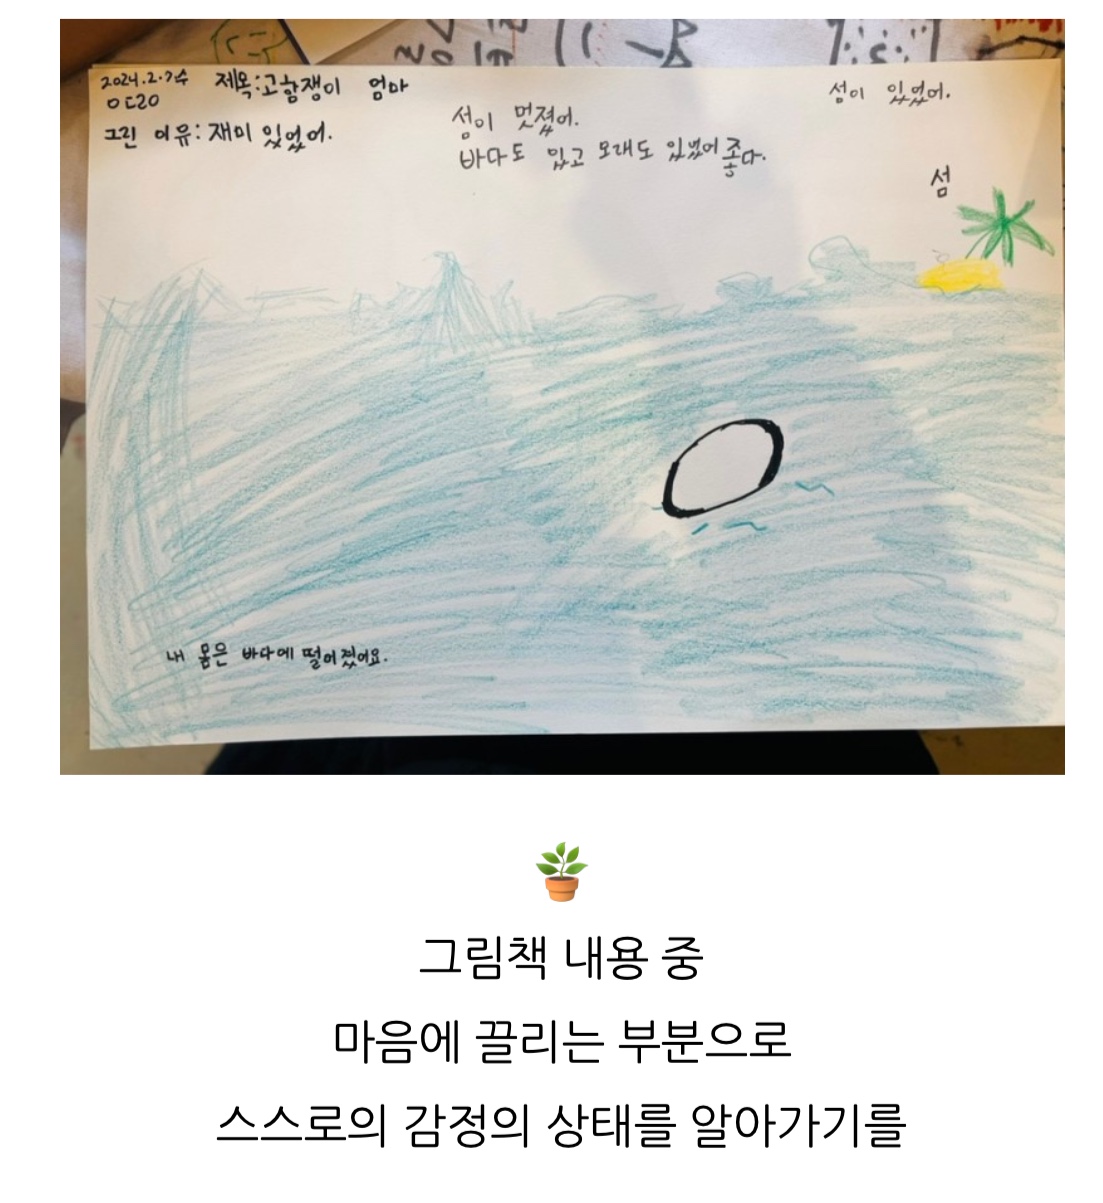 2024.2.7수
제목:고함쟁이 엄마
그린 이유: 재미 있었어.
섬이 멋졌어.
바다도 있고 모래도 있었어 좋다.
섬이 있었어.
섬
내 몸은 바다에 떨어졌어요.
그림책 내용 중
마음에 끌리는 부분으로
스스로의 감정의 상태를 알아가기를